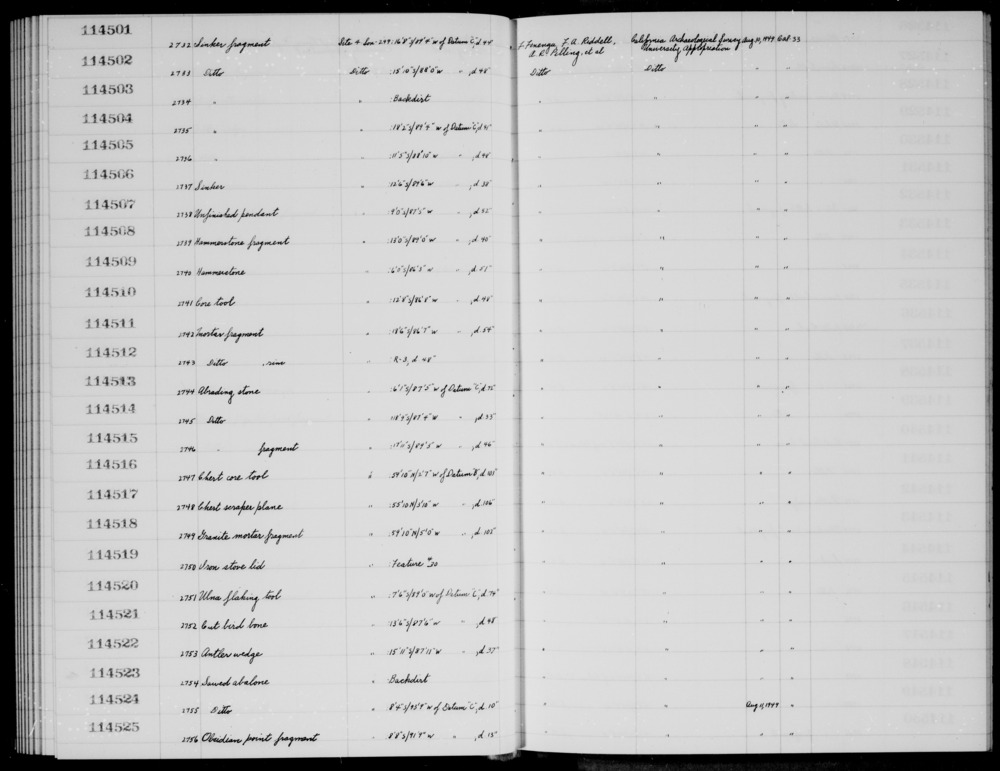 114501 2732 Sinker fragment Site 4-Son-299: 16'8"S/89'4" w of Datum "C", d 40" F. Fenenga, F. A. Riddell, California Archaeological Survey Aug 10, 1949 Cal 33
A. R. Pilling, et al University Appropriation
114502 2733 Ditto Ditto :15'10"S/88'0" w " , d 48" Ditto Ditto
114503 2734 " " :Backdirt " " " "
114504 2735 " " :18'2"S/89'4" w of Datum "C", d 41" " " " "
114505 2736 " " :11'5"S/88'10" w " , d 40" " " " "
114506 2737 Sinker " :12'6"S/89'6" w " , d 38" " " " "
114507 2738 Unfinished pendant " :9'0"S/87'5" w " , d 52" " " " "
114508 2739 Hammerstone fragment " :15'0"S/89'0" w " , d 40" " " " "
114509 2740 Hammerstone " :6'5"S/86'5" w " , d 51" " " " "
114510 2741 Core tool " :12'8"S/86'8" w " , d 48" " " " "
114511 2742 Mortar fragment " :18'6"S/86'7" w " , d 54" " " " "
114512 2743 Ditto , rim " :R-3, d 48" " " " "
114513 2744 Abrading stone " :6'1"S/87'5" w of Datum "C", d 75" " " " "
114514 2745 Ditto " :18'9"S/87'4" w " , d 35" " " " "
114515 2746 " fragment " :17'11"S/89'5" w " , d 46" " " " "
114516 2747 Chert core tool " :59'10"N/5'7" w of Datum "B", d 101" " " " "
114517 2748 Chert scraper plane " :55'10"N/3'10" w " , d 106" " " " "
114518 2749 Granite mortar fragment " :59'10"N/5'0" w " , d 105" " " " "
114519 2750 Iron stove lid " :Feature #30 " " " "
114520 2751 Ulna flaking tool " :7'6"S/89'0" w of Datum "C", d 74" " " " "
114521 2752 Cut bird bone " :13'6"S/87'6" w " , d 48" " " " "
114522 2753 Antler wedge " :15'11"S/87'11" w " , d 37" " " " "
114523 2754 Sawed abalone " :Backdirt " " " "
114524 2755 Ditto " :8'4"S/95'9" w of Datum "C", d 10" " " Aug 11, 1949 "
114525 2756 Obsidian point fragment " :8'8"S/91'9" w " , d 15" " " " "